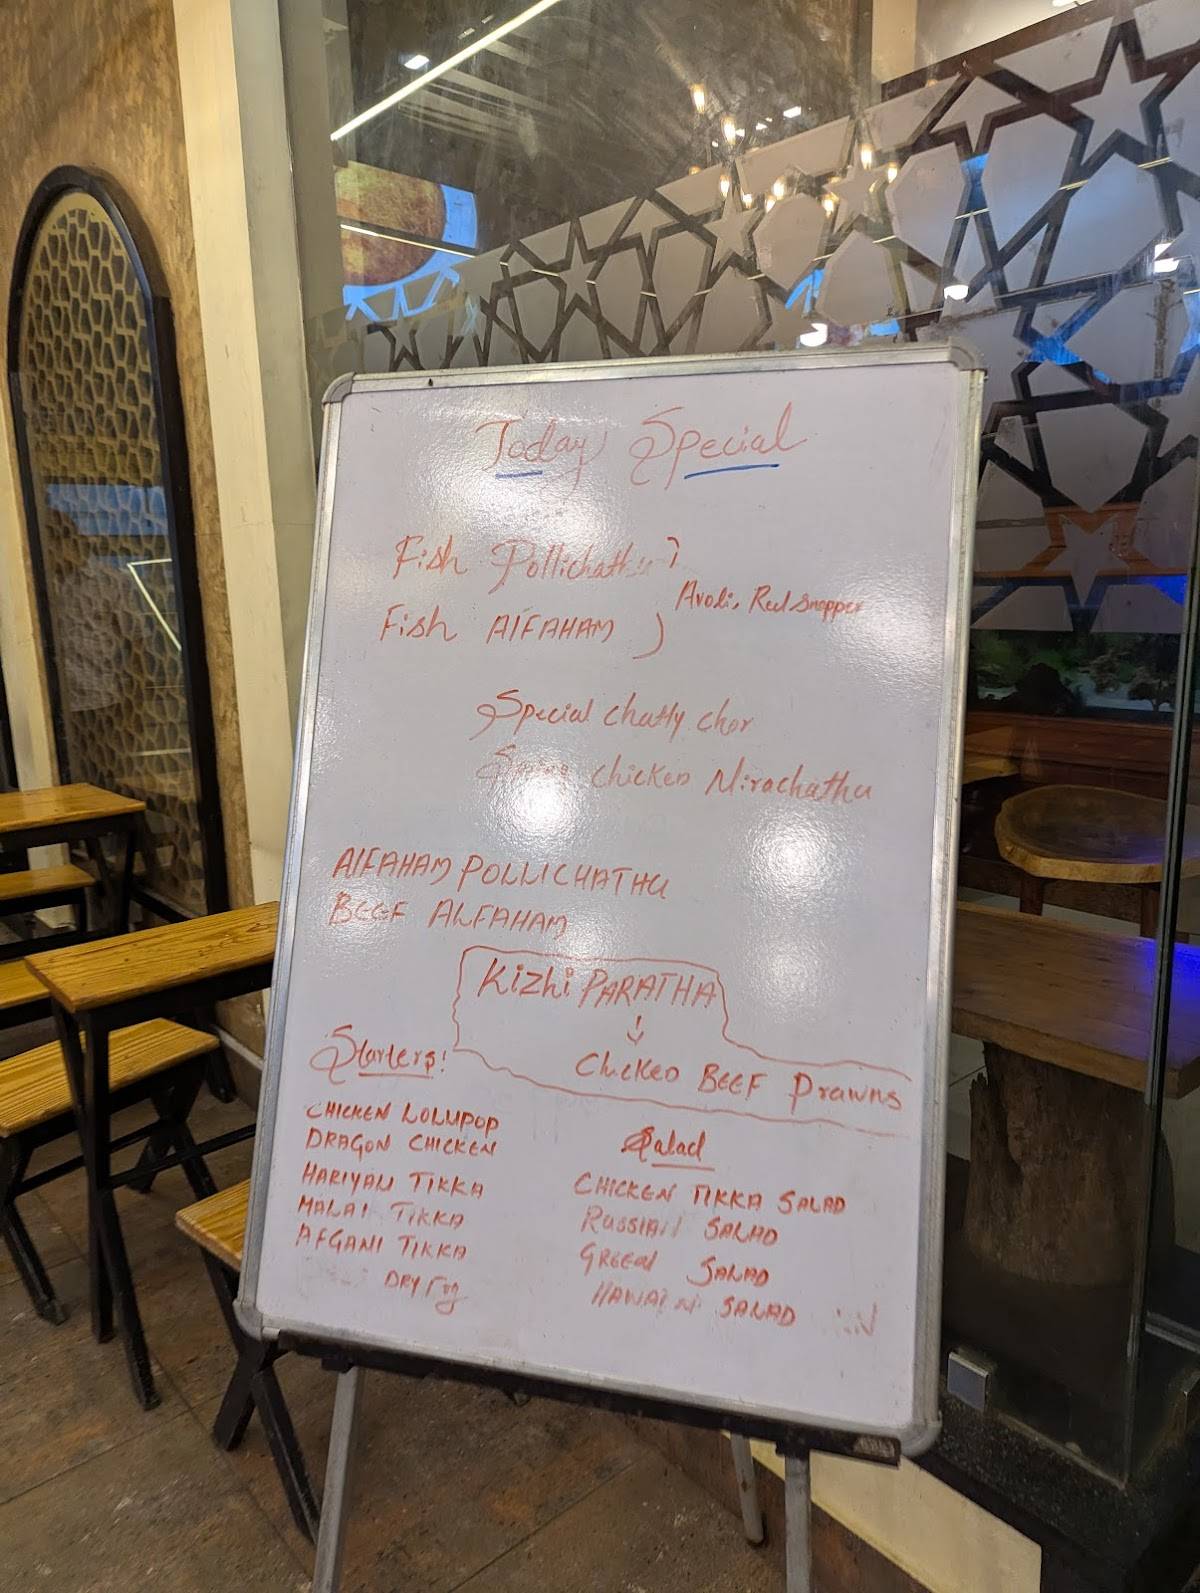 Today Special
Fish Pollichathu
Avoli, Red Snapper
Fish AlFAHAM
Special chatty chor
chicken Nirachathu
AlFAHAM POLLICHATHU
BEEF ALFAHAM
Kizhi PARATHA
Chicken BEEF Prawns
Starters!
CHICKEN LOLLIPOP
DRAGON CHICKEN
HARIYALI TIKKA
MALAI TIKKA
AFGANI TIKKA
DRY
Salad
CHICKEN TIKKA SALAD
RUSSIAN SALAD
GREEN SALAD
SALAD